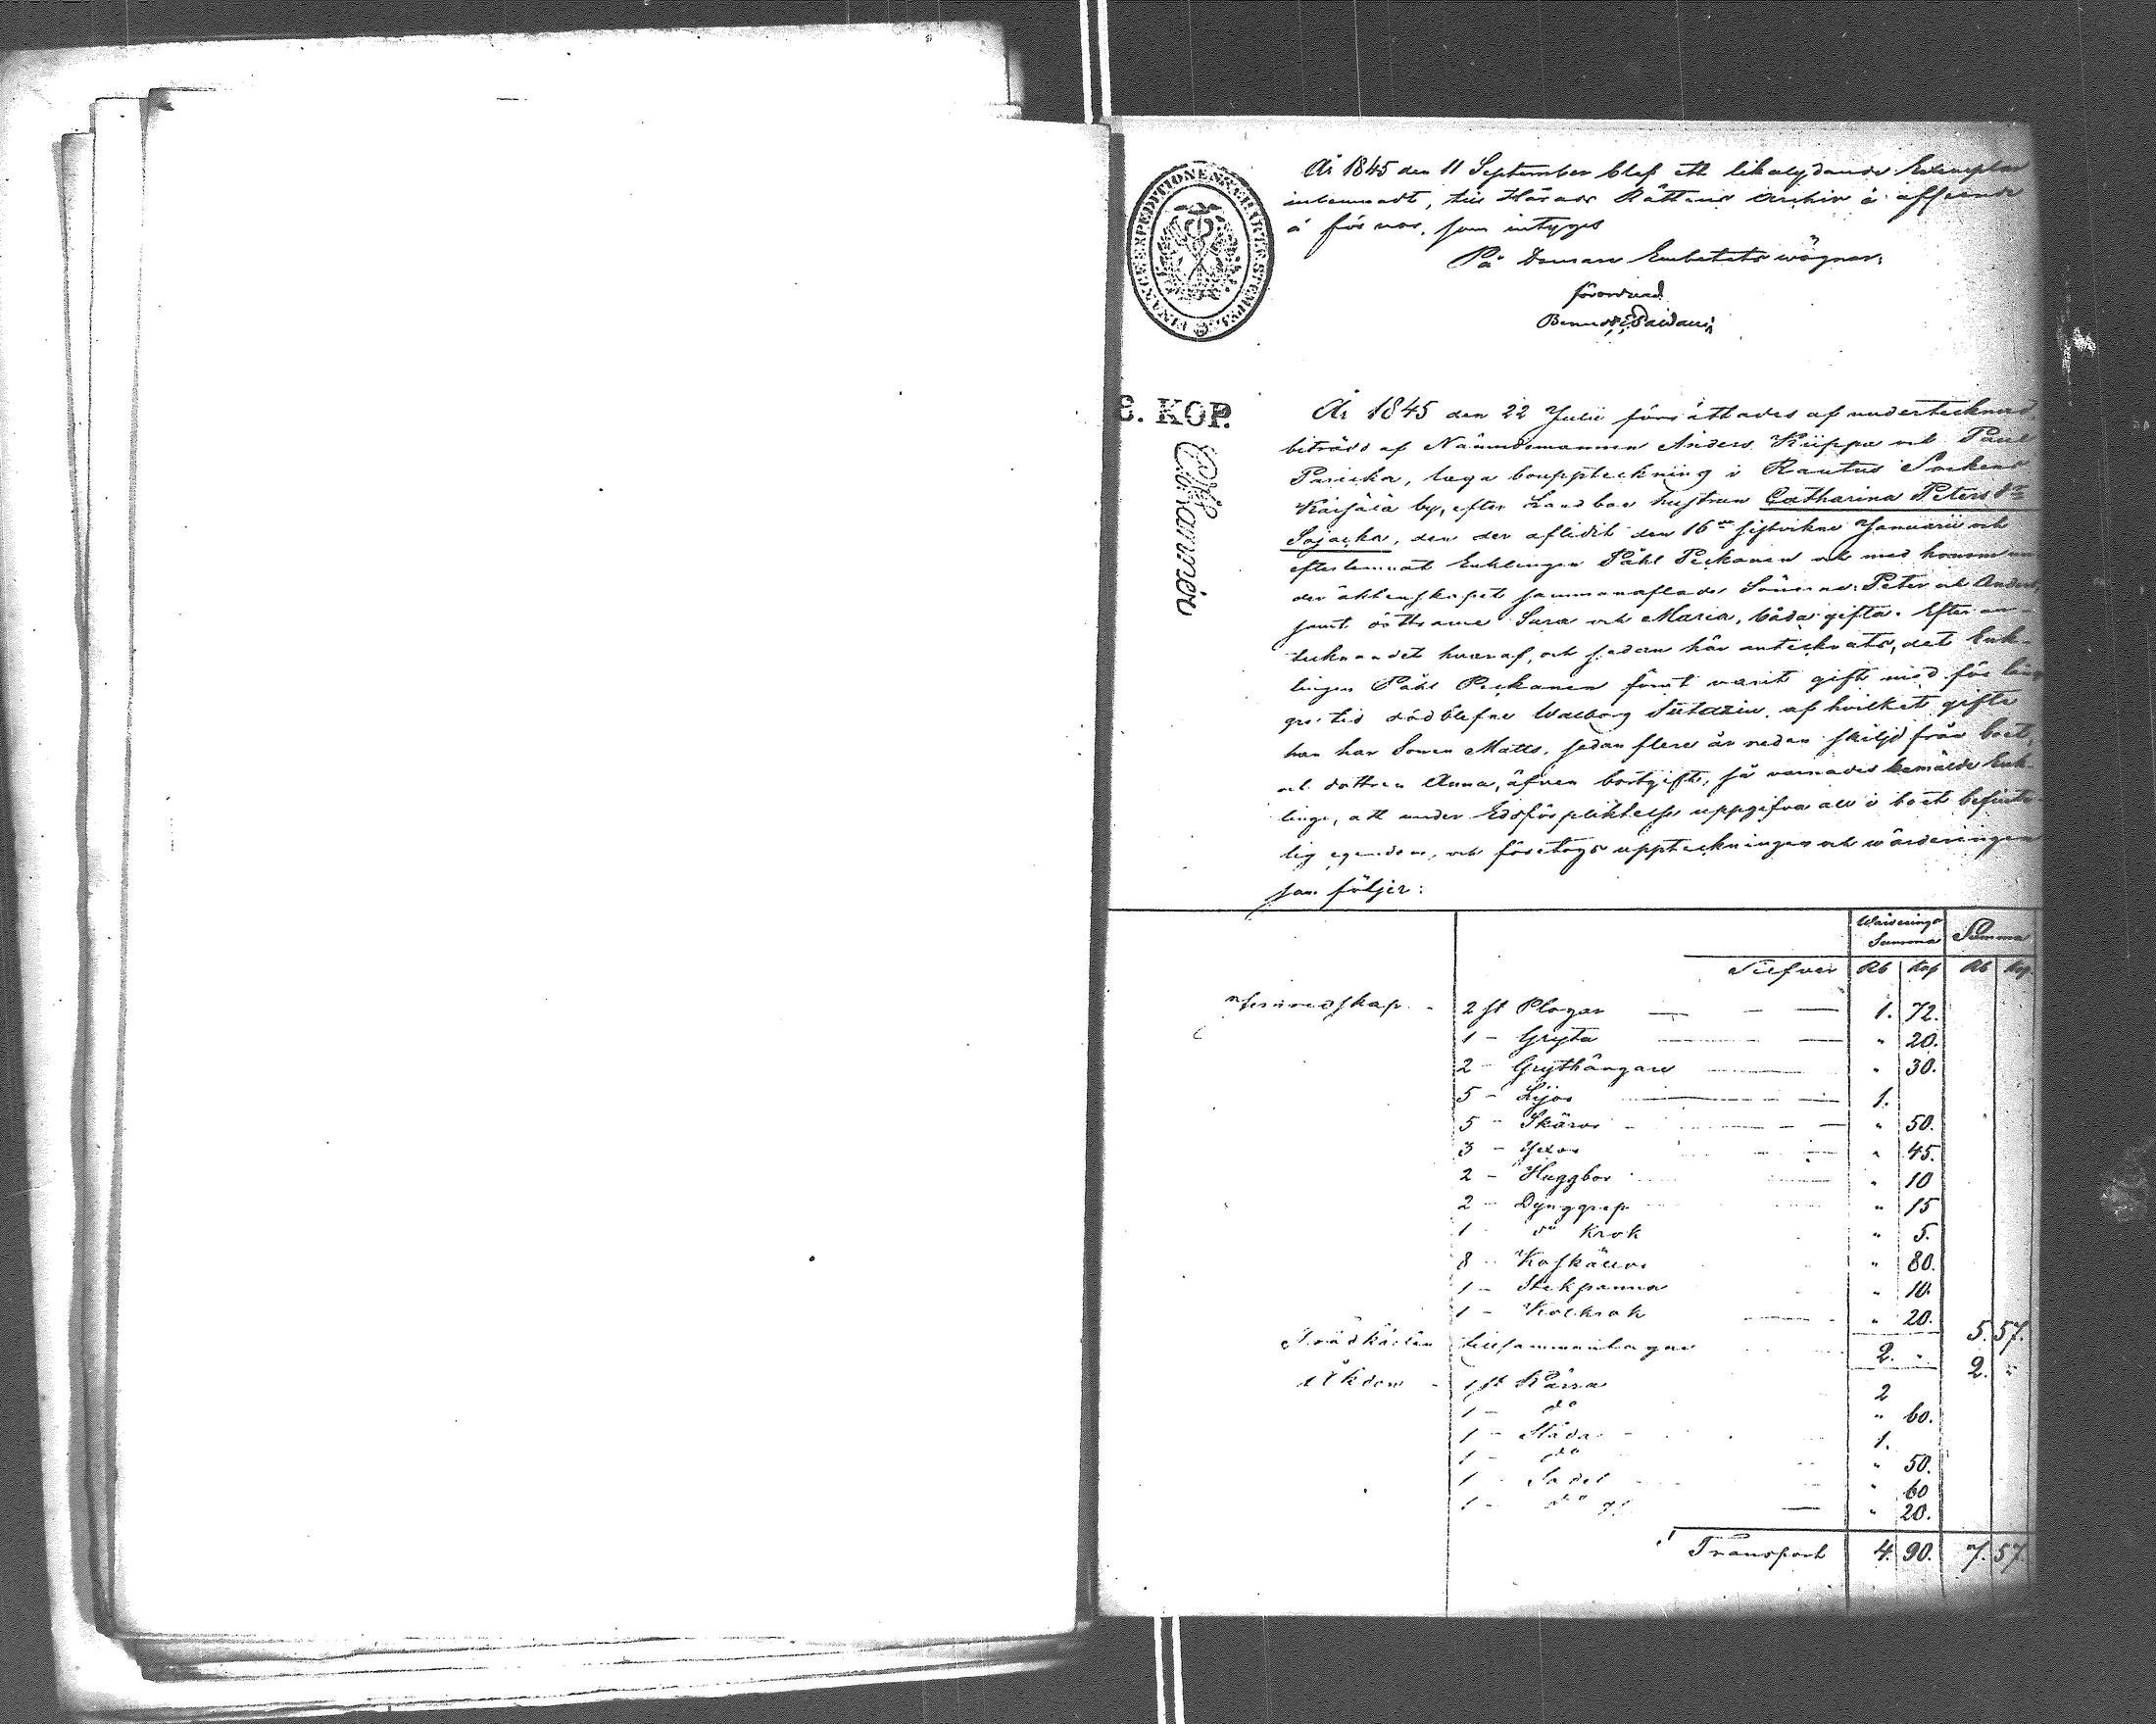 År 1845 den 11 September blef ett likalydande Exemplar
inlemnadt, till Härads Rättens archiv å affseende
å för var, som intyges
På Domare Embetets vägnar:
förordnad
FINANCE EXPEDITIONENS CHARTÆ STEMPEL
8. KOP.
År 1845 den 22 Julii förrättades af undertecknad
biträdd af Nämndemannen Anders Kiippa och Paul
Paricka, laga bouppteckning i Rautus Sockens
by, efter Landbon hustrun Catharina Petersdr
Sojacka, den der aflidit den 16de sistvikne Januarii och
efterlemnat Enklingen Påhl Peckanen och med honom un
der äktenskapet sammanaflade Sönerne: Peter och Anders,
samt döttrarne Sara och Maria, båda gifta. Efter an-
tecknandet hvaraf, och sedan här antecknats, det Enk-
lingen Påhl Peckanen förut varit gift med för län
gre tid dödblefne Walborg af hvilket gifte
han har Sonen Matts, sedan flere år redan skiljd från boet,
och dottren Anna, äfven bortgift, så varnades bemälde Enk-
linge, att under Edsförpliktelse uppgifva all i boet befint-
lig egendom, och företogs uppteckningen och värderingen
som följer:
Wärderings Summa
Summa
Silfver Rb Kop Rb Kop.
2 st Plogar 1. 72.
1 - Gryta " 20.
2 - Grythängare " 30.
5 - Lijor 1.
5 - Skäror " 50.
3 - Yxor " 45.
2 - Huggbor " 10
2 - Dynggrep " 15
1 do Krok " 5.
8 - " 80.
1 - Stekpanna " 10.
1 - Kolkrok " 20. 5. 57.
Trädkärlen tillsammantagne 2. " 2. "
Åkdon - 1 st Kärra 2
1 - do " 60.
1 - Släda 1.
1 - do " 50.
1 - Sadel " 60
1 - do " 20.
Transport 4. 90. 7. 57.